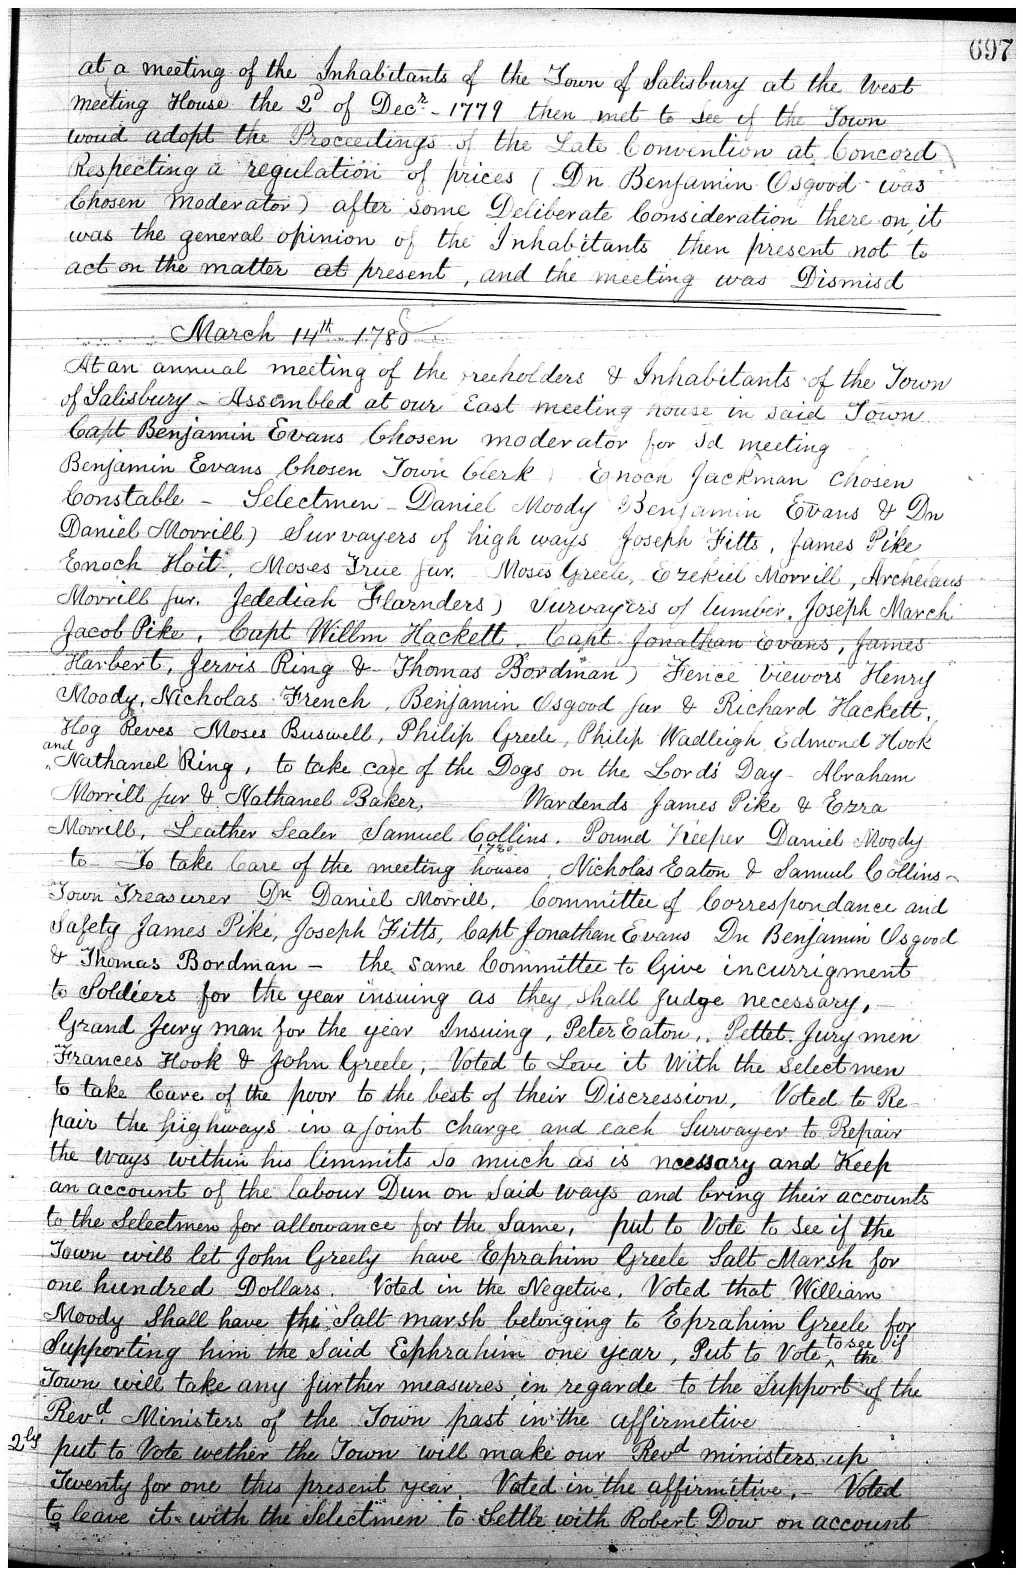 697
at a meeting of the Inhabitants of the Town of Salisbury at the West
meeting House the 2d of Decr. - 1779 then met to see if the Town
woud adopt the Proceedings of the Late Convention at Concord
Respecting a regulation of prices ( Dn Benjamin Osgood was
Chosen Moderator) after some Deliberate Consideration there on it
was the general opinion of the Inhabitants then present not to
act on the matter at present, and the meeting was Dismisd
March 14th 1780
At an annual meeting of the reeholders & Inhabitants of the Town
of Salisbury - Assembled at our East meeting house in said Town
Capt Benjamin Evans Chosen moderator for sd meeting
Benjamin Evans Chosen Town Clerk, Enoch Jackman Chosen
Constable - Selectmen - Daniel Moody Benjamin Evans & Dn
Daniel Morrill) Survayers of high ways Joseph Fitts, James Pike
Enoch Hoit, Moses True Jur. Moses Greele, Ezekiel Morrill, Archelaus
Morrill Jur. Jedediah Flarnders) Survayers of lumber, Joseph March
Jacob Pike, Capt Willm Hackett, Capt Jonathan Evans, James
Harbert, Jervis Ring & Thomas Bordman) Fence Viewors Henry
Moody, Nicholas French, Benjamin Osgood Jur & Richard Hackett,
Hog Reves Moses Buswell, Philip Greele, Philip Wadleigh Edmond Hook
and Nathaneel Ring, to take care of the Dogs on the Lords Day - Abraham
Morrill Jur & Nathanel Baker, Wardends James Pike & Ezra
Morrill, Leather Sealer Samuel Collins. Pound Keeper Daniel Moody
to - To take Care of the meeting houses 1780, Nicholas Eaton & Samuel Collins -
Town Treasurer Dn Daniel Morrill, Committee of Correspondance and
Safety James Pike, Joseph Fitts, Capt Jonathan Evans Dn Benjamin Osgood
& Thomas Bordman - the same Committee to Give incurrigment
to Soldiers for the year insuing as they shall Judge necessary,
Grand Jury man for the year Insuing, Peter Eaton, Pettet Jury men
Frances Hook & John Greele, Voted to Leve it With the Selectmen
to take Care of the poor to the best of their Discression, Voted to Re-
pair the highways in a Joint charge and each Survayer to Repair
the ways within his limmits so much as is ncessary and Keep
an account of the labour Dun on said ways and bring their accounts
to the Selectmen for allowance for the same, put to Vote to see if the
Town will let John Greely have Eprahim Greele Salt Marsh for
one hundred Dollars. Voted in the Negetive, Voted that William
Moody Shall have the Salt marsh belonging to Eprahim Greele for
Supporting him the Said Ephrahim one year, Put to Vote to see if the
Town will take any further measures in regarde to the Support of the
Revd. Ministers of the Town past in the affirmetive
2ly put to Vote wether the Town will make our Revd ministers up
Twenty for one this present year. Voted in the affirmitive, - Voted
to leave it with the Selectmen to Settle with Robert Dow on account